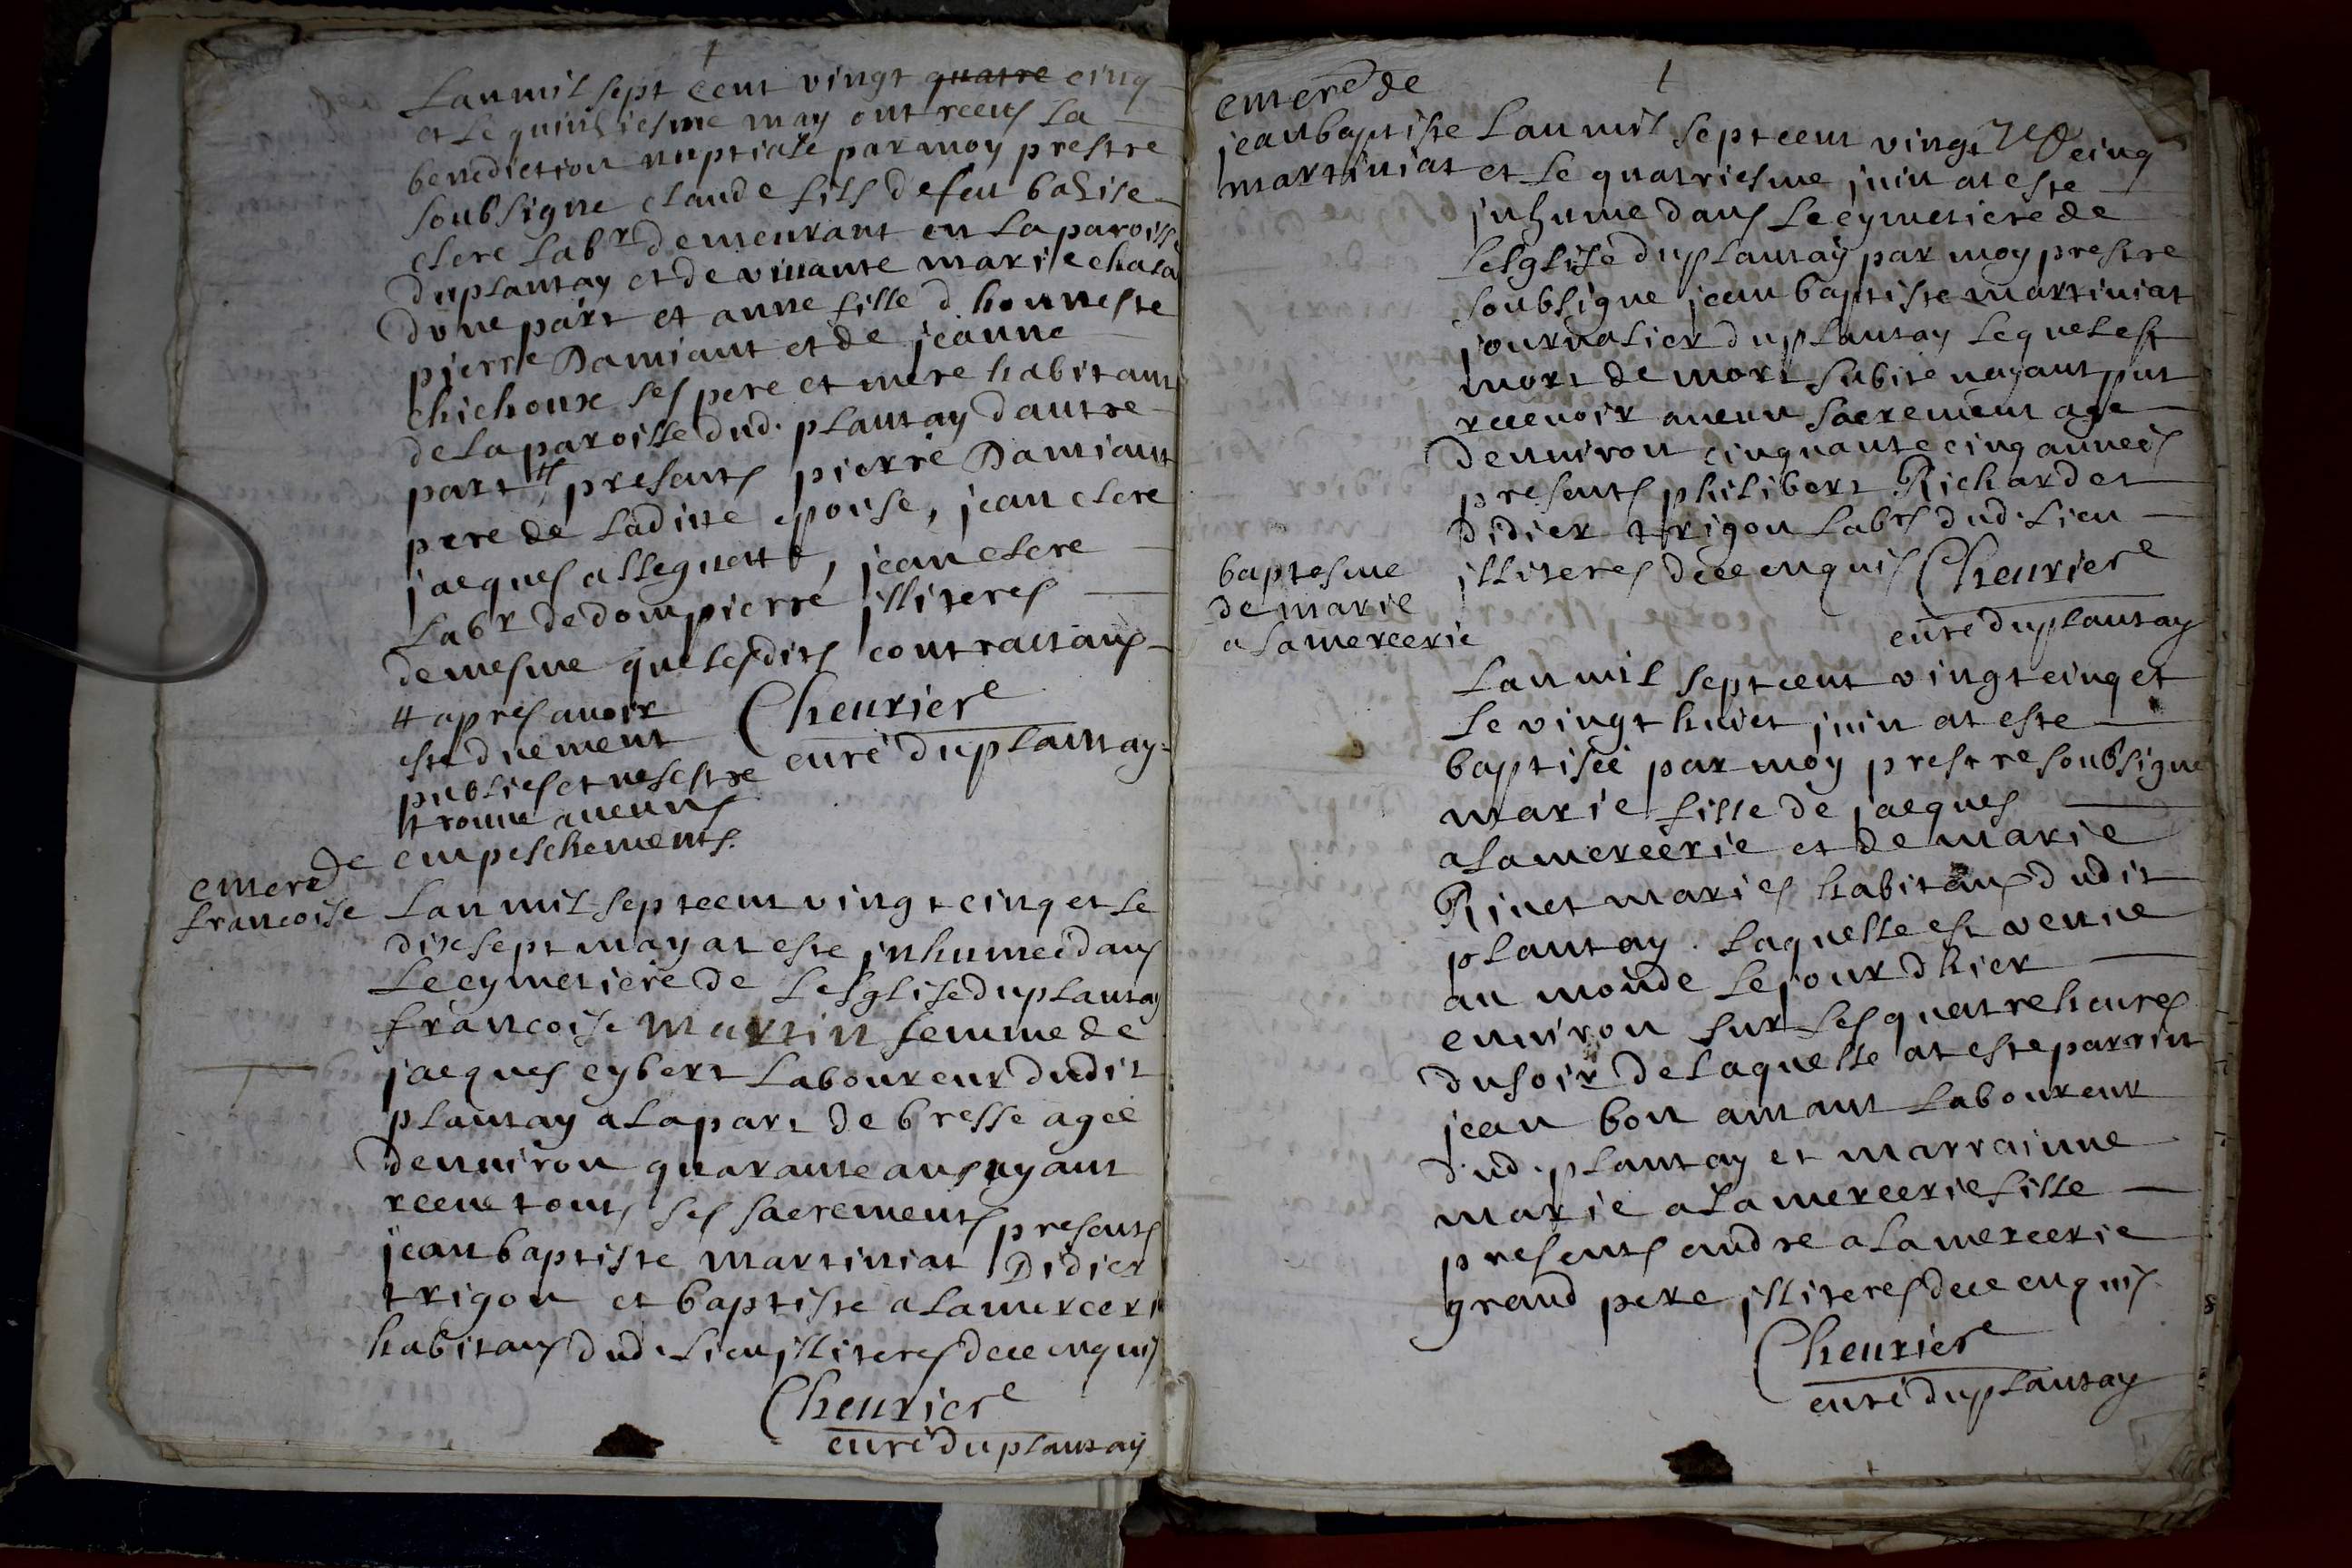 Lan mil sept cent vingt quatre cinq
et le quinziesme may ont receus la
benediction nuptiale par moy prestre
soubsigne claude fils de feu bazile
clerc labr demeurant en la paroisse
duplantay et de vivante marie chala
dune part et anne fille d honneste
pierre Damiant et de jeanne
chichoux ses pere et mere habitants
de la paroisse dud. plantay dautre
part # presents pierre Damiant
pere de laditte epouse, jean clerc
jacques allegnette, jean clerc
labr de dompierre jlliteres
de mesme que lesdits contractans
# apres avoir
este duement
publies et ne sestre
trouve aucuns
empeschements.
Cheuriere
curé duplantay
enterre de
francoise
Lan mil sept cent vingt cinq et le
dix sept may at este jnhumee dans
le cymetiere de lesglise duplantay
francoise martin femme de
jacques cybert laboureur dudit
plantay a la part de bresse agee
denuiron quarante ans ayant
receue tous ses sacrements presents
jean baptiste martiniat Didier
trigon et baptiste alamercerie
habitans dud. lieu jlliteres de ce enquis
Cheuriere
curé duplantay
enterre de
jean baptiste
martiniat
Lan mil sept cent vingt cinq
et le quatriesme juin at este
jnhume dans le cymetiere de
lesglise duplantay par moy prestre
soubsigne jean baptiste martiniat
journalier duplantay lequel est
mort de mort subite nayant put
recevoir aucun sacrement age
denuiron cinquante cinq annees
presents philibert Richard et
didier trigon labrs dud. lieu
jlliteres de ce enquis Cheuriere
curé duplantay
baptesme
de marie
alamercerie
Lan mil sept cent vingt cinq et
le vingt huict juin at este
baptisée par moy prestre soubsigne
marie fille de jacques
alamercerie et de marie
Rivet maries habitans dudit
plantay. laquelle est venue
au monde le jour dhier
enuiron sur les quatre heures
du soir de laquelle at este parrin
jean bon amant laboureur
dud. plantay et marrainne
marie alamercerie fille
presents andre alamercerie
grand pere jlliteres de ce enquis
Cheuriere
curé duplantay